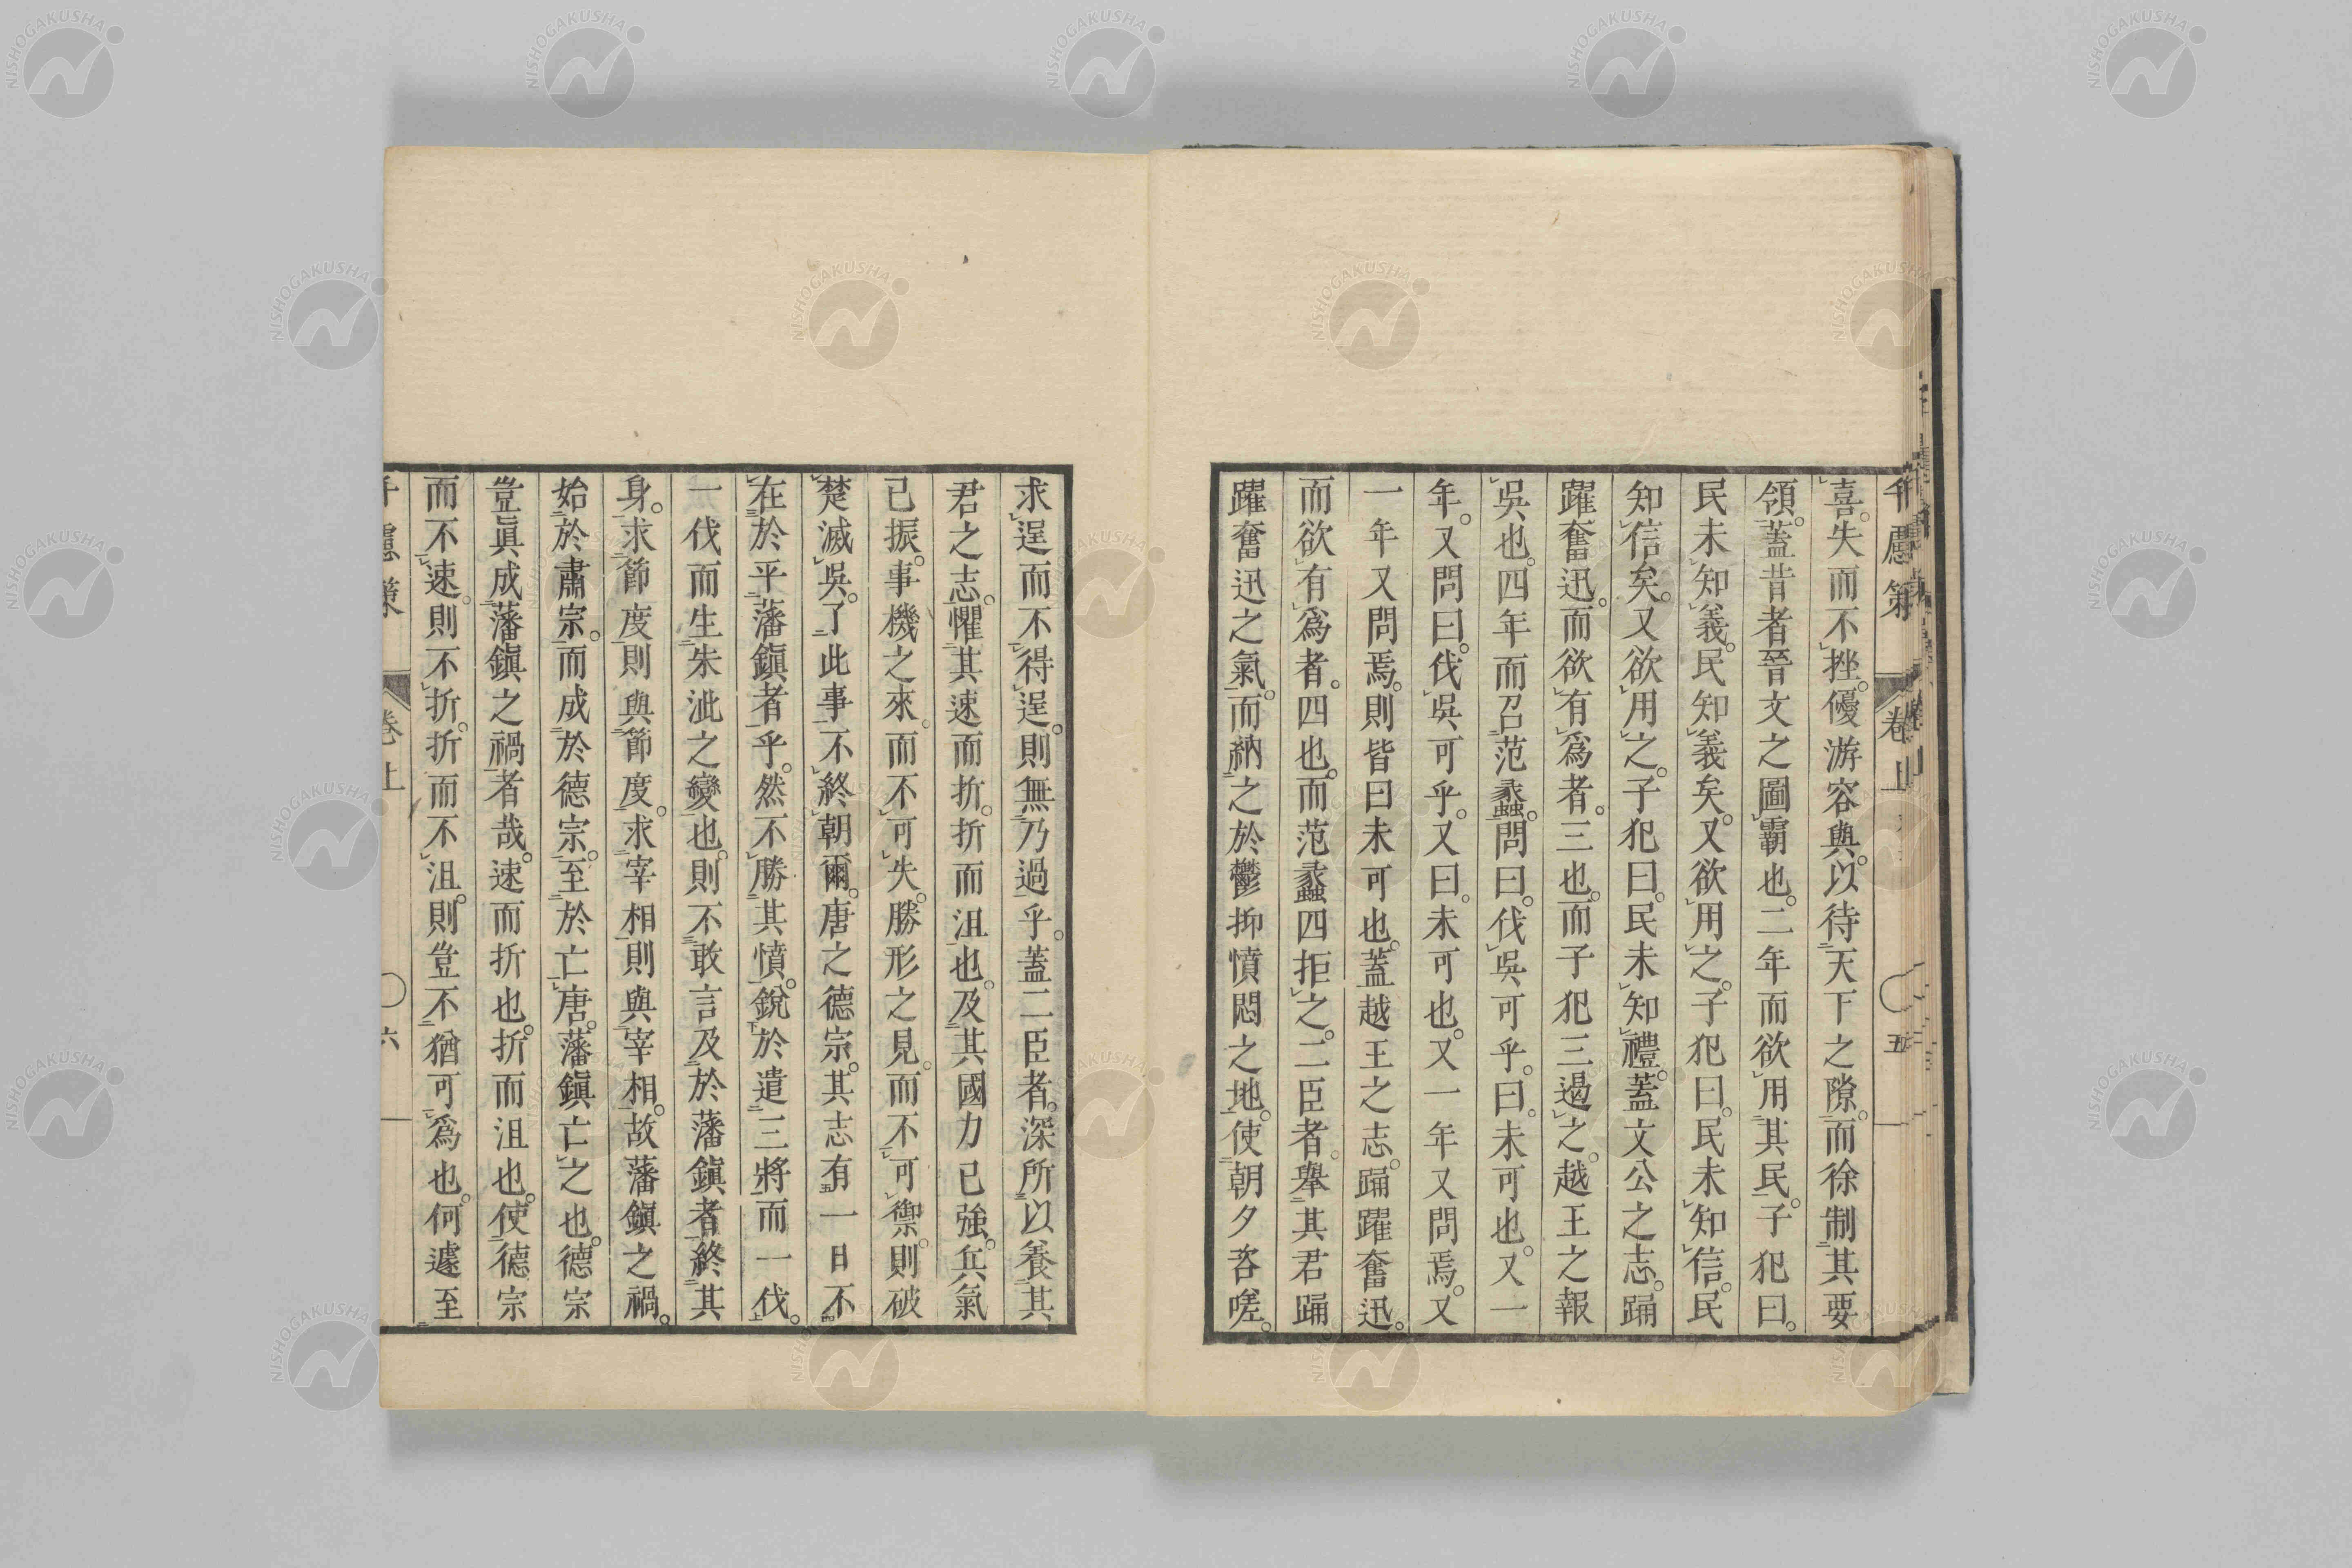 千慮策 卷上 五
喜。失而不挫。優游容與。以待天下之隙。而徐制其要
領。蓋昔者晉文之圖霸也。二年而欲用其民。子犯曰。
民未知義。民知義矣。又欲用之。子犯曰。民未知信。民
知信矣。又欲用之。子犯曰。民未知禮。蓋文公之志。踊
躍奮迅。而欲有爲者。三也。而子犯三遏之。越王之報
吳也。四年而召范蠡。問曰。伐吳可乎。曰。未可也。又一
年。又問曰。伐吳可乎。又曰。未可也。又一年又問焉。又
一年又問焉。則皆曰未可也。蓋越王之志。踊躍奮迅。
而欲有爲者。四也。而范蠡四拒之。二臣者。舉其君踊
躍奮迅之氣。而納之於鬱抑憤悶之地。使朝夕咨嗟。
求逞而不得逞。則無乃過乎。蓋二臣者。深所以養其
君之志。懼其速而折。折而沮也。及其國力已強。兵氣
已振。事機之來。而不可失。勝形之見。而不可禦。則破
楚滅吳。了此事。不終朝爾。唐之德宗。其志有一日不
在於平藩鎭者乎。然不勝其憤。銳於遣三將而一伐。
一伐而生朱泚之變也。則不敢言及於藩鎭者。終其
身。求節度則與節度。求宰相則與宰相。故藩鎭之禍。
始於肅宗。而成於德宗。至於亡唐。藩鎭亡之也。德宗
豈眞成藩鎭之禍者哉。速而折也。折而沮也。使德宗
而不速。則不折。折而不沮。則豈不猶可爲也。何遽至
千慮策 卷上 六
NISHOGAKUSHA